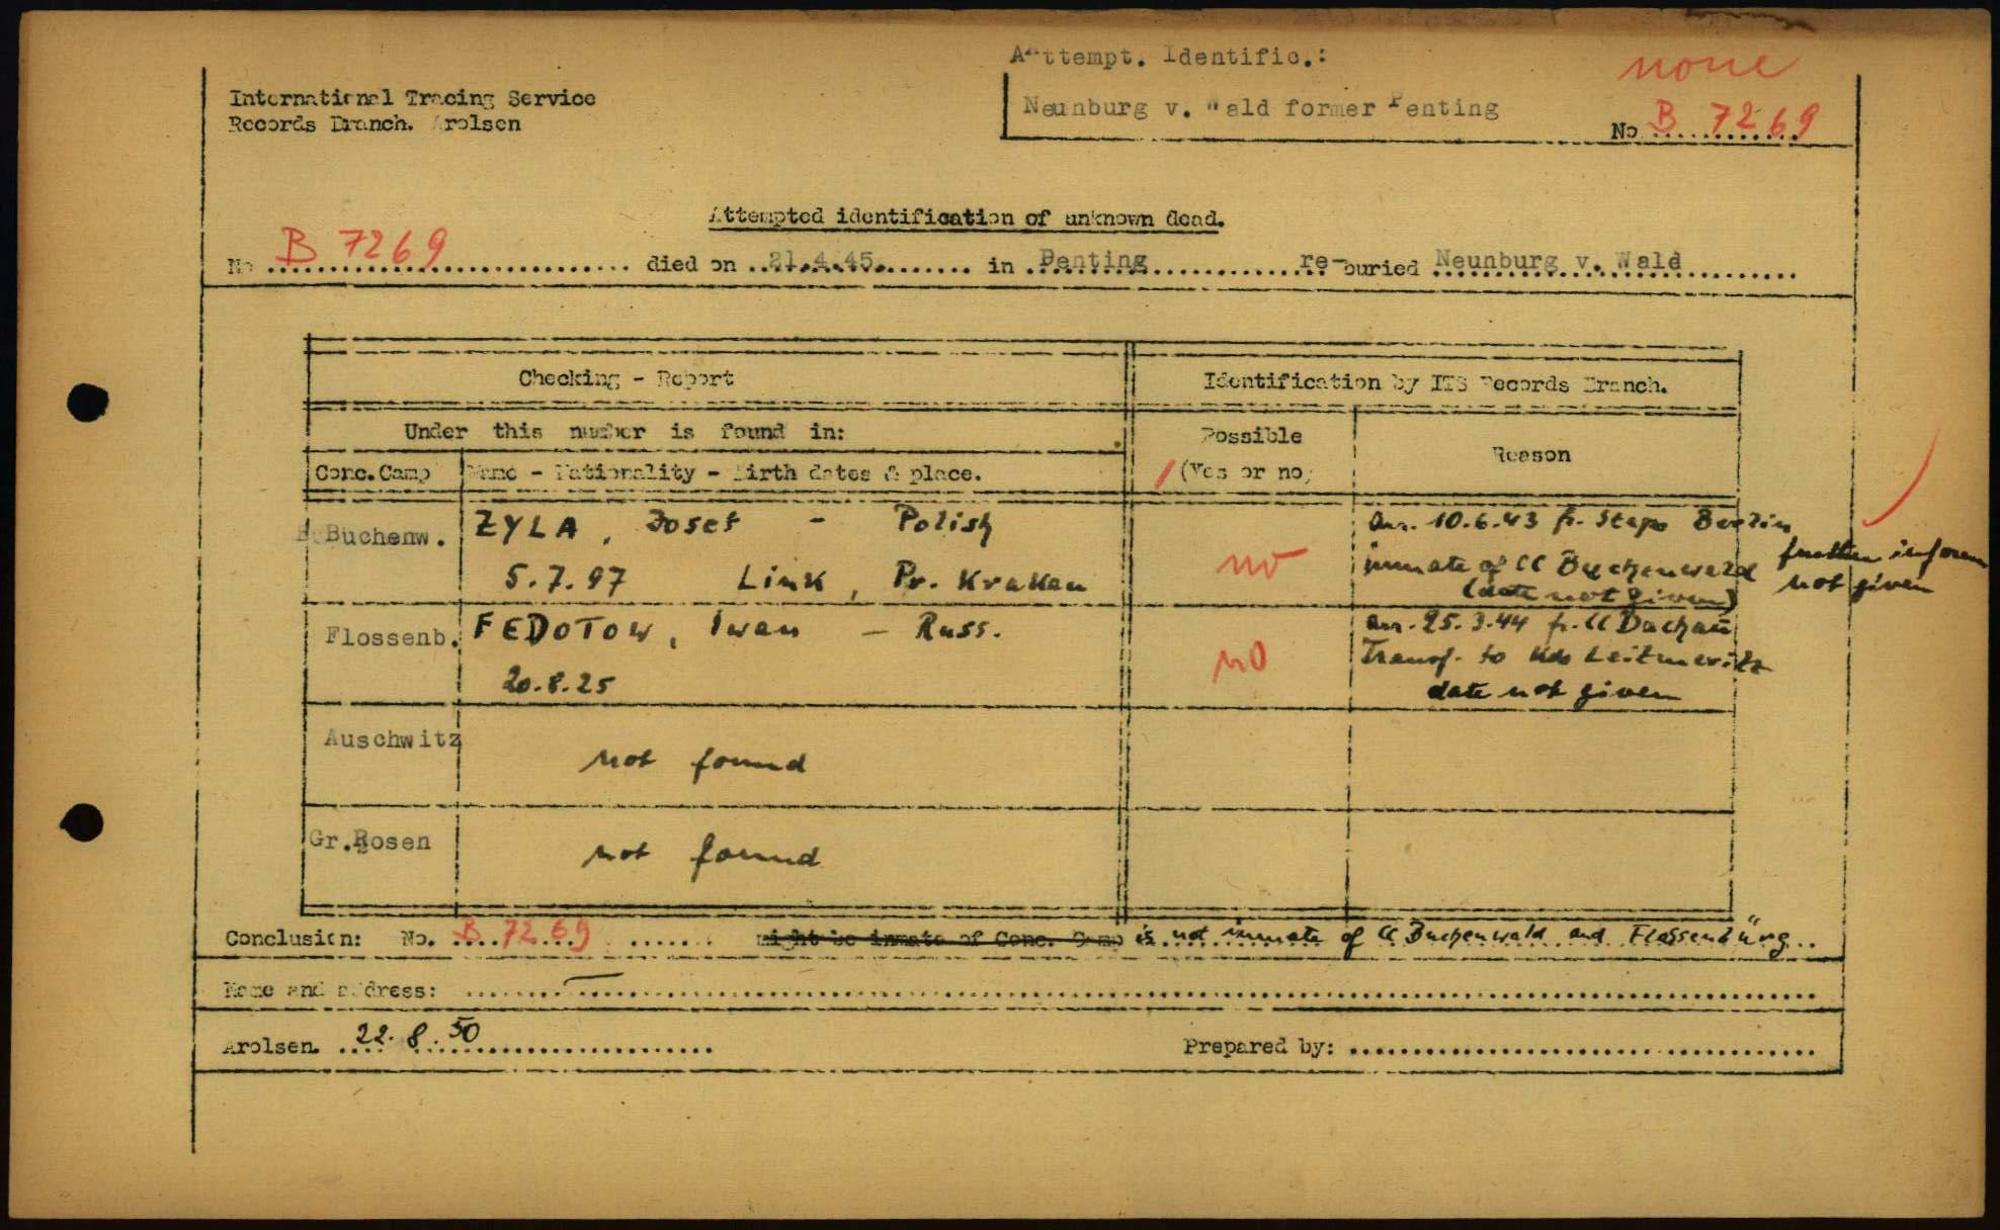 Attempt. Identific.:
none
International Tracing Service
Records Branch. Arolsen
Neunburg v. Wald former Penting
No B 7269
Attempted identification of unknown dead.
No B 7269 died on 21.4.45. in Penting re-buried Neunburg v. Wald
Checking - Report
Identification by ITS Records Branch.
Under this number is found in:
Possible
(Yes or no)
Reason
Conc.Camp Name - Nationality - Birth dates & place.
Buchenw. ZYLA, Josef - Polish
5.7.97 Link, Pr. Krakau
no
arr. 10.6.43 fr. Stapo Berlin
inmate of CC Buchenwald
(date not given)
further inform
not given
Flossenb. FEDOTOW, Iwan - Russ.
20.8.25
no
arr. 25.3.44 fr. CC Dachau
Transf. to Kdo Leitmeritz
date not given
Auschwitz not found
Gr.Rosen not found
Conclusion: No. B 7269 might be inmate of Conc. Camp is not inmate of CC Buchenwald and Flossenbürg
Name and address: —
Arolsen. 22.8.50
Prepared by: